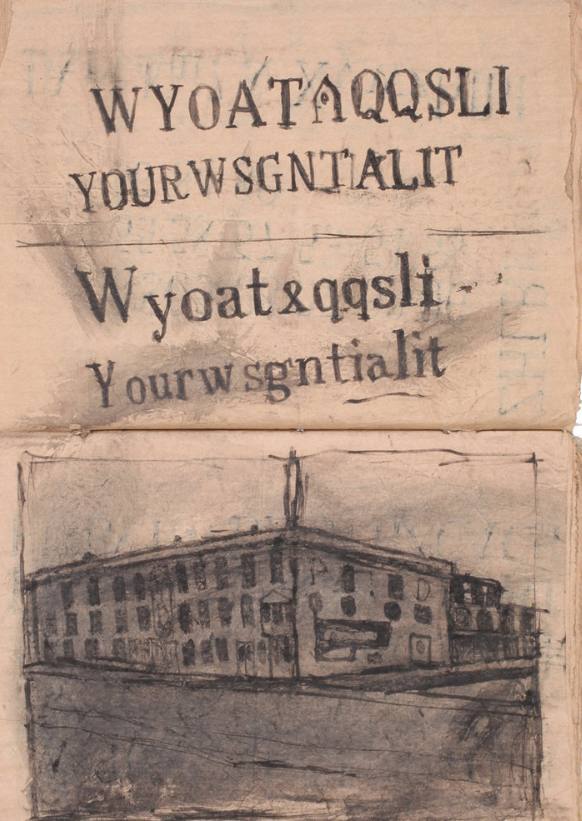 WYOATAQQSLI
YOURWSGNTIALIT
Wyoat&qqsli
Yourwsgntialit